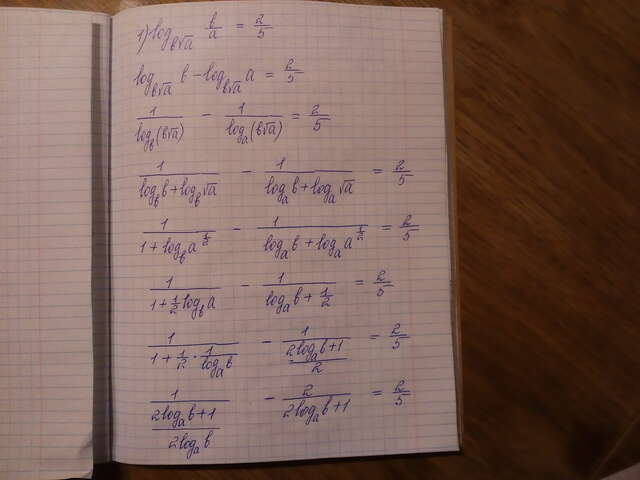 1) log_{b√a} b/a = 2/5
log_{b√a} b − log_{b√a} a = 2/5
1/(log_b(b√a)) − 1/(log_a(b√a)) = 2/5
1/(log_b b + log_b √a) − 1/(log_a b + log_a √a) = 2/5
1/(1 + log_b a^{1/2}) − 1/(log_a b + log_a a^{1/2}) = 2/5
1/(1 + 1/2 log_b a) − 1/(log_a b + 1/2) = 2/5
1/(1 + 1/2 · 1/(log_a b)) − 1/((2log_a b + 1)/2) = 2/5
1/((2log_a b + 1)/(2log_a b)) − 2/(2log_a b + 1) = 2/5